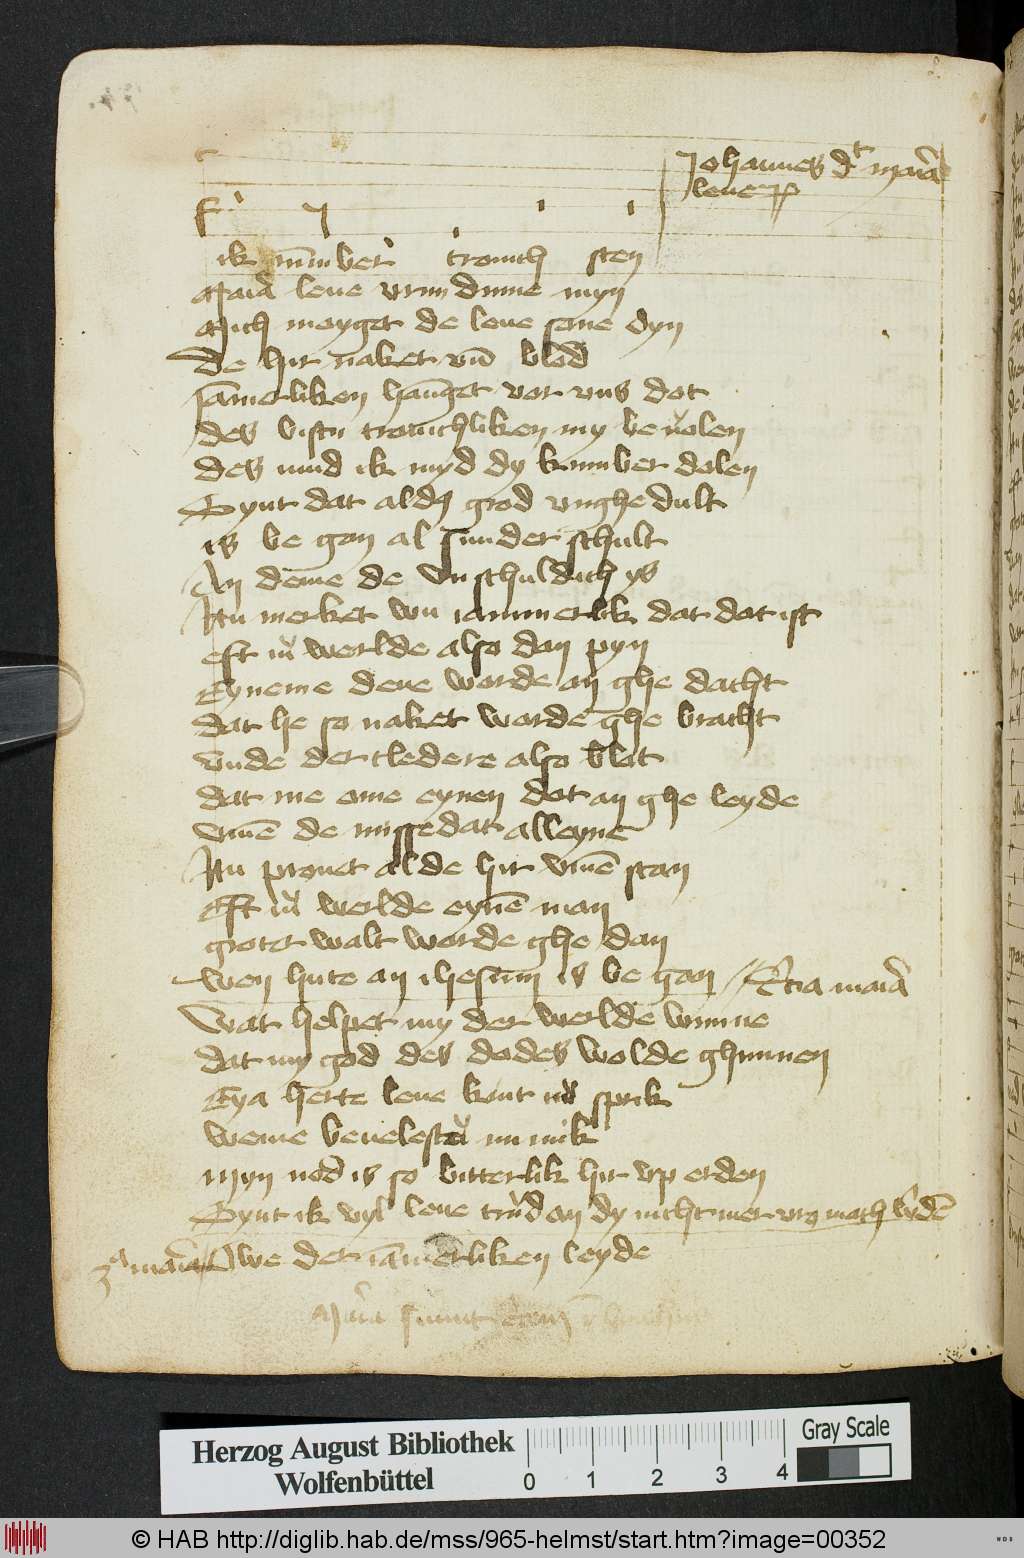 Johannes dt maria
leue
ik ummber trouwch sten
Maria leue vrundinne myn
Mich moyget de leue sone dyn
de hir naket vn blod
iamerliken hanget vor vns dot
des bistu trouwchliken my beuolen
des mud ik myd dy kummber dolen
Synt dat aldus grod vnghedult
is be gan al sunder schult
An deme de vnschuldich ys
Nu merket wu iammerlik dat dot ist
eft iu werlde also dan pyn
Eyneme deue worde an ghe dacht
dat he so naket worde ghe bracht
vnde der cledere also blot
dat me eme eynen dot an ghe leyde
vmme de missedat alleyne
Nu prouet al de hir vmme stan
Eft iu werlde eynem man
groter walt worde ghe dan
wen hute an ihesum is be gan Tercia maria
Wat helpet my der werlde wunne
dat my god des dodes wolde ghunnen
Eya herte leue kint nu sprik
weme beuelestu nu mik
myn nod is so bitterlik hir vp erden
Synt ik vyl leue trud an dy nicht mer vro mach werden
3a maria Owe der iamerliken leyde
Herzog August Bibliothek
Wolfenbüttel
0 1 2 3 4
Gray Scale
© HAB http://diglib.hab.de/mss/965-helmst/start.htm?image=00352